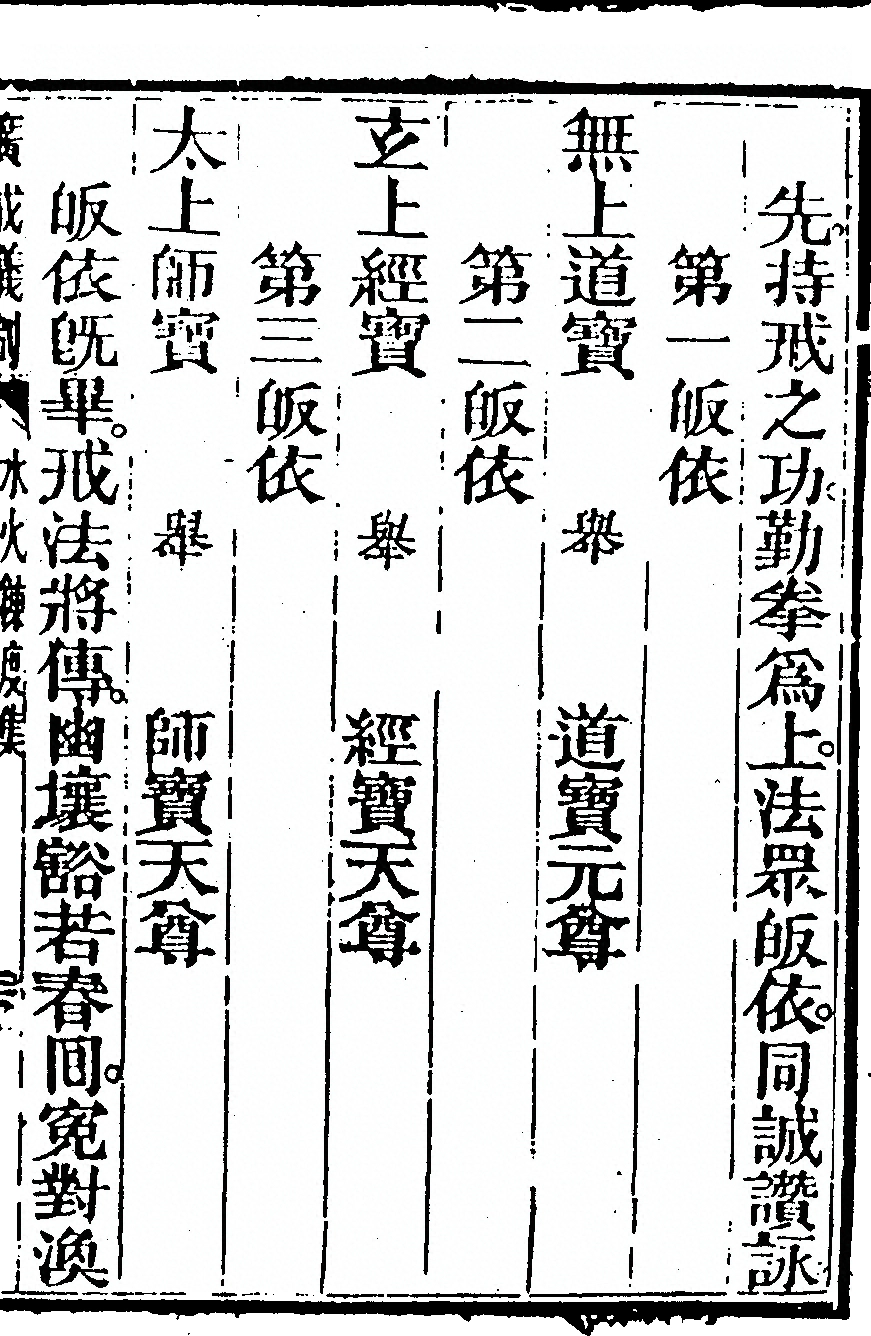 先持戒之功勤拳爲上。法眾皈依。同誠讚詠
第一皈依
無上道寶 舉 道寶元尊
第二皈依
玄上經寶 舉 經寶天尊
第三皈依
太上師寶 舉 師寶天尊
皈依旣畢。戒法將傳。幽壤豁若春回。寃對渙
廣成儀制 水火鍊度集